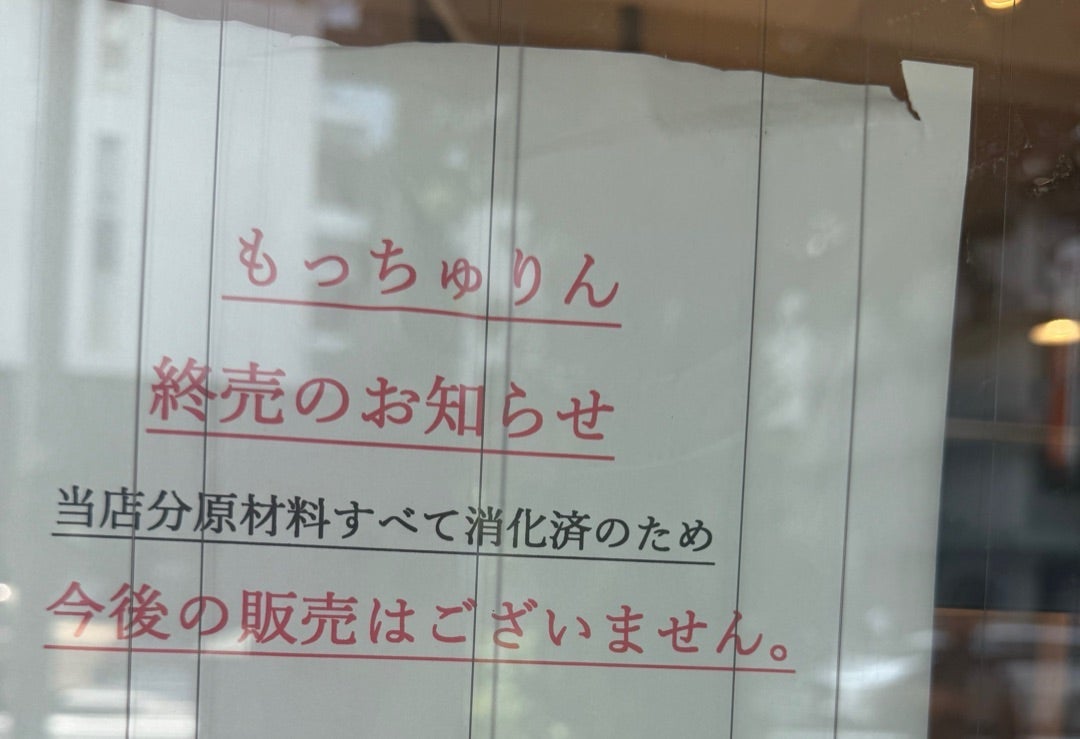 もっちゅりん
終売のお知らせ
当店分原材料すべて消化済のため
今後の販売はございません。